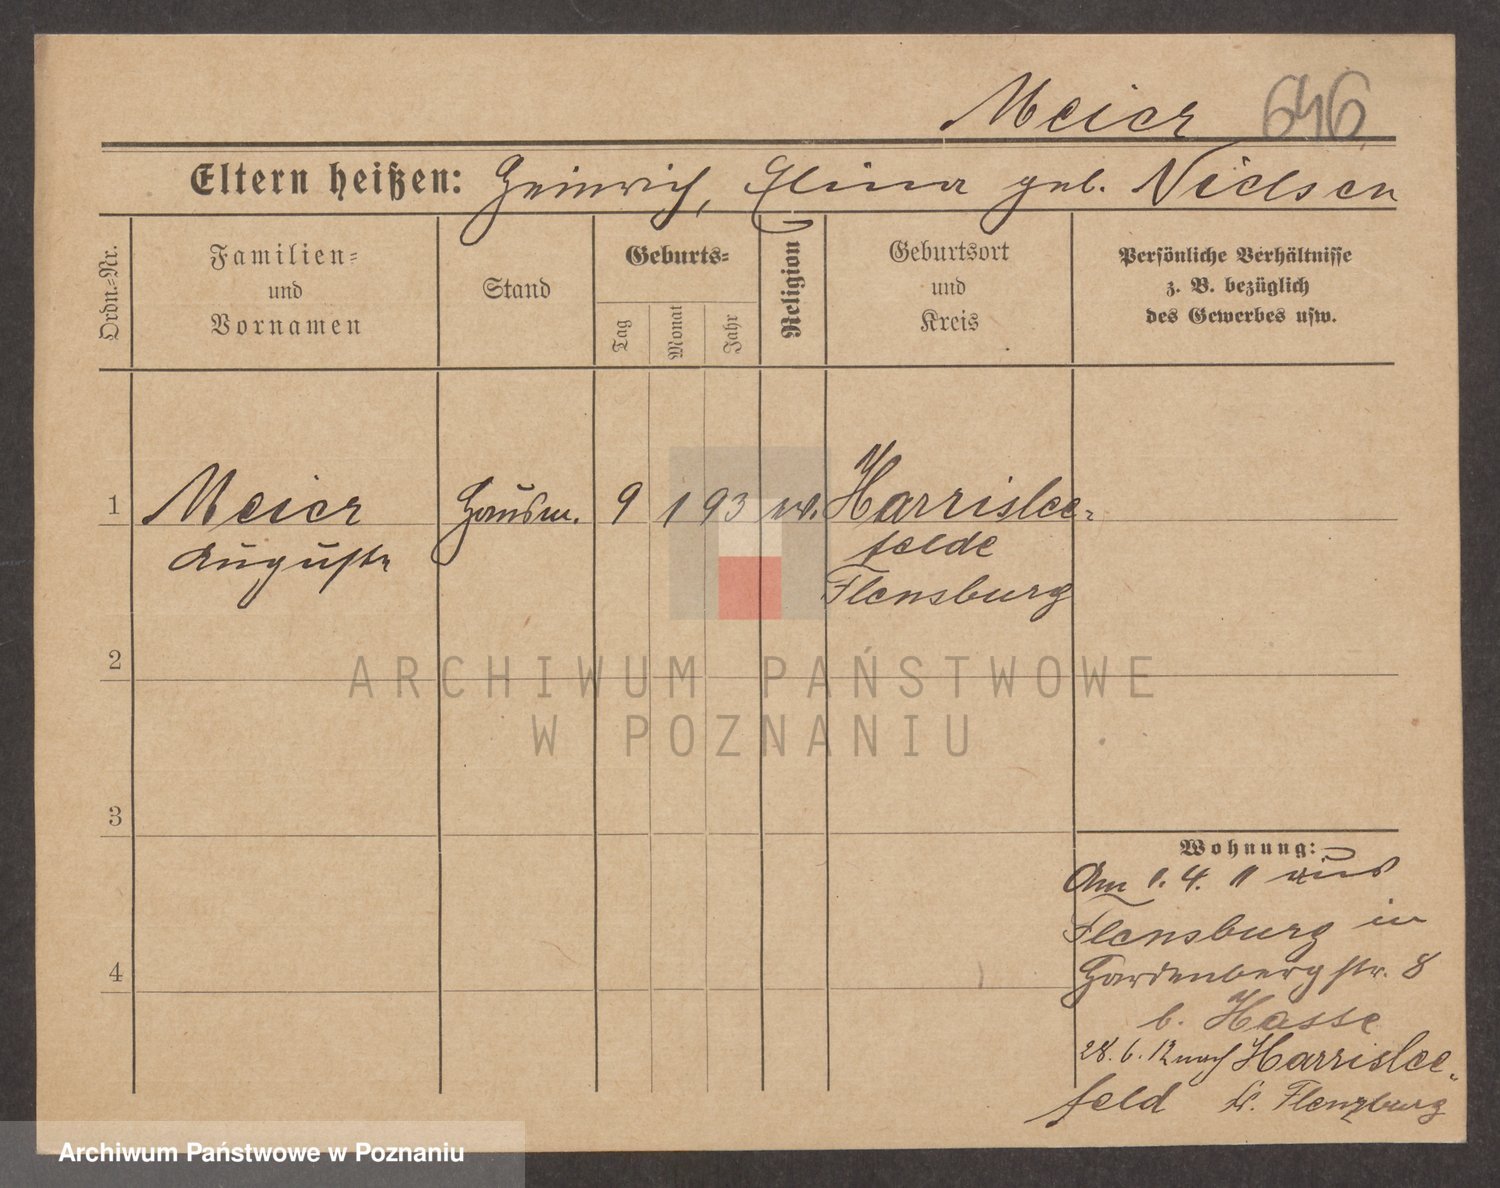 Meier 646
Eltern heißen: Heinrich, Elina geb. Nielsen
Ordn.-Nr.
Familien- und Vornamen
Stand
Geburts-
Tag
Monat
Jahr
Religion
Geburtsort und Kreis
Persönliche Verhältnisse
z. B. bezüglich
des Gewerbes usw.
1 Meier Hausm. 9 1 93 ev. Harrislee-
Auguste felde
Flensburg
2
3
4
Wohnung:
Am 1. 4. 11 aus
Flensburg in
Hardenbergstr. 8
b. Hasse
28. 6. 12 nach Harrislee-
feld Kr. Flenzburg
ARCHIWUM PAŃSTWOWE
W POZNANIU
Archiwum Państwowe w Poznaniu